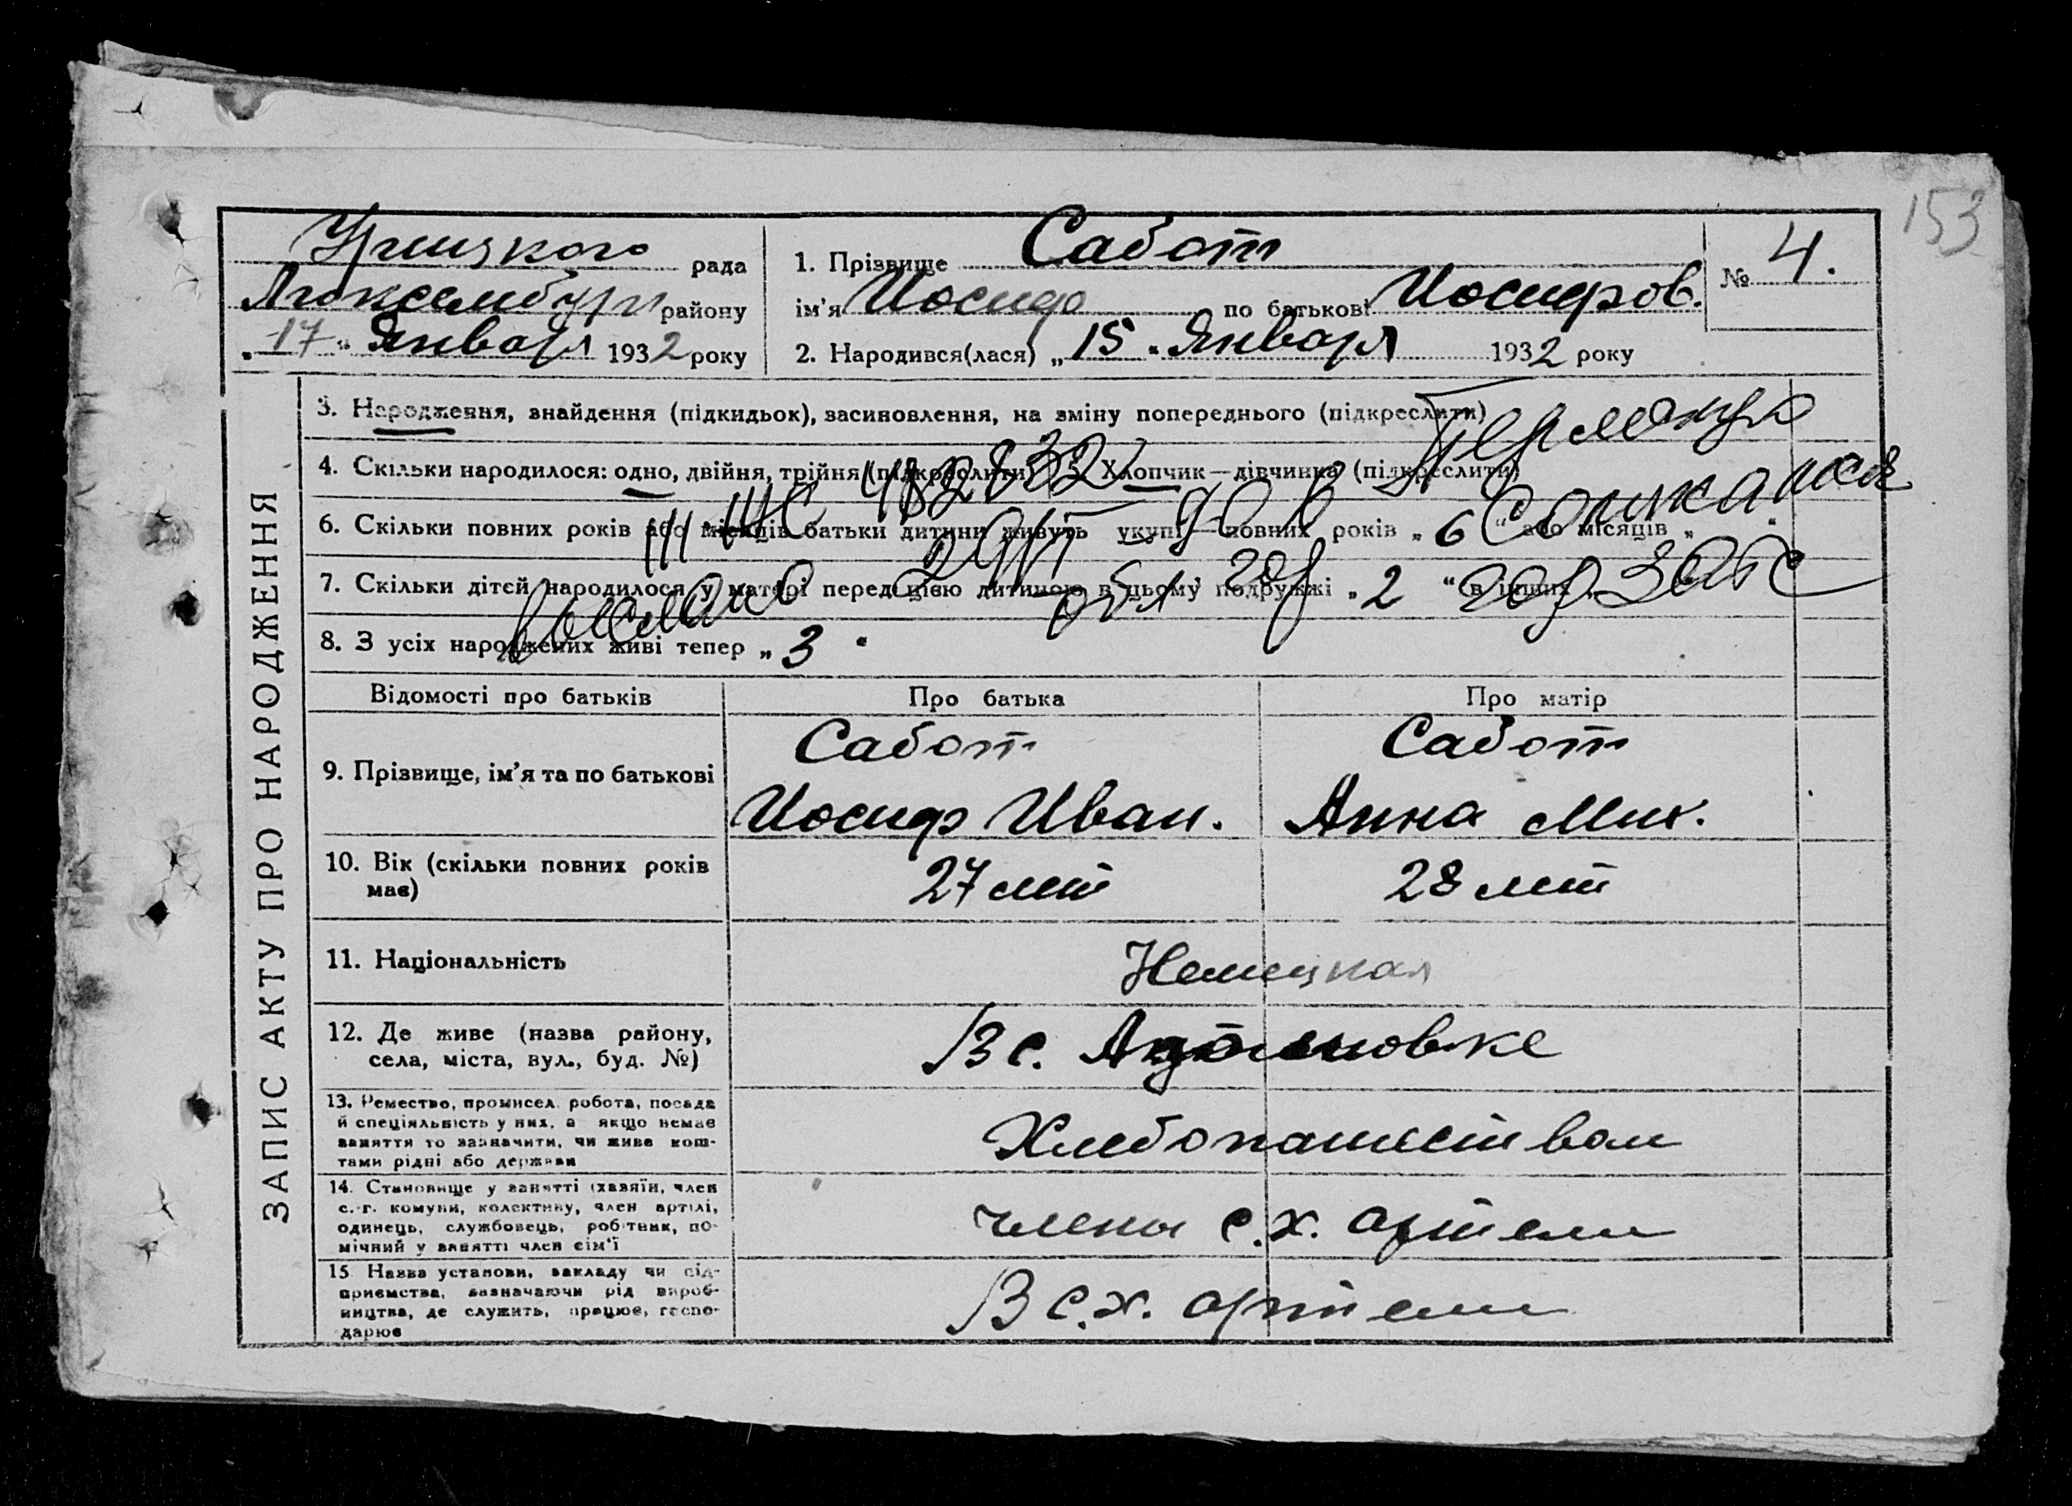 153
Урицкого рада
Люксембург району
„17“ Января 1932 року
1. Прізвище Сабот
ім'я Иосиф по батькові Иосифов.
2. Народився(лася) „15“ Января 1932 року
№ 4.
ЗАПИС АКТУ ПРО НАРОДЖЕННЯ
3. Народження, знайдення (підкидьок), засиновлення, на зміну попереднього (підкреслити)
4. Скільки народилося: одно, двійня, трійня (підкреслити) 5. Хлопчик—дівчинка (підкреслити)
6. Скільки повних років або місяців батьки дитини живуть укупі—повних років „6“ або місяців „ “
7. Скільки дітей народилося у матері перед цією дитиною в цьому подружжі „2“ в інших
8. З усіх народжених живі тепер „3“
Відомості про батьків
Про батька
Про матір
9. Прізвище, ім'я та по батькові
Сабот
Иосиф Иван.
Сабот
Анна Мих.
10. Вік (скільки повних років
має)
27 лет
28 лет
11. Національність
Немецкая
12. Де живе (назва району,
села, міста, вул., буд. №)
В с.
13. Ремество, промисел, робота, посада
й спеціяльність у них, а якщо немає
заняття то зазначити, чи живе кош-
тами рідні або держави
Хлебопашеством
14. Становище у занятті (хазяїн, член
с.-г. комуни, колективу, член артілі,
одинець, службовець, робітник, по-
мічний у занятті член сім'ї
члены с.х. артели
15. Назва установи, закладу чи під-
приємства, зазначаючи рід вироб-
ництва, де служить, працює, госпо-
дарює
В с.х. артели